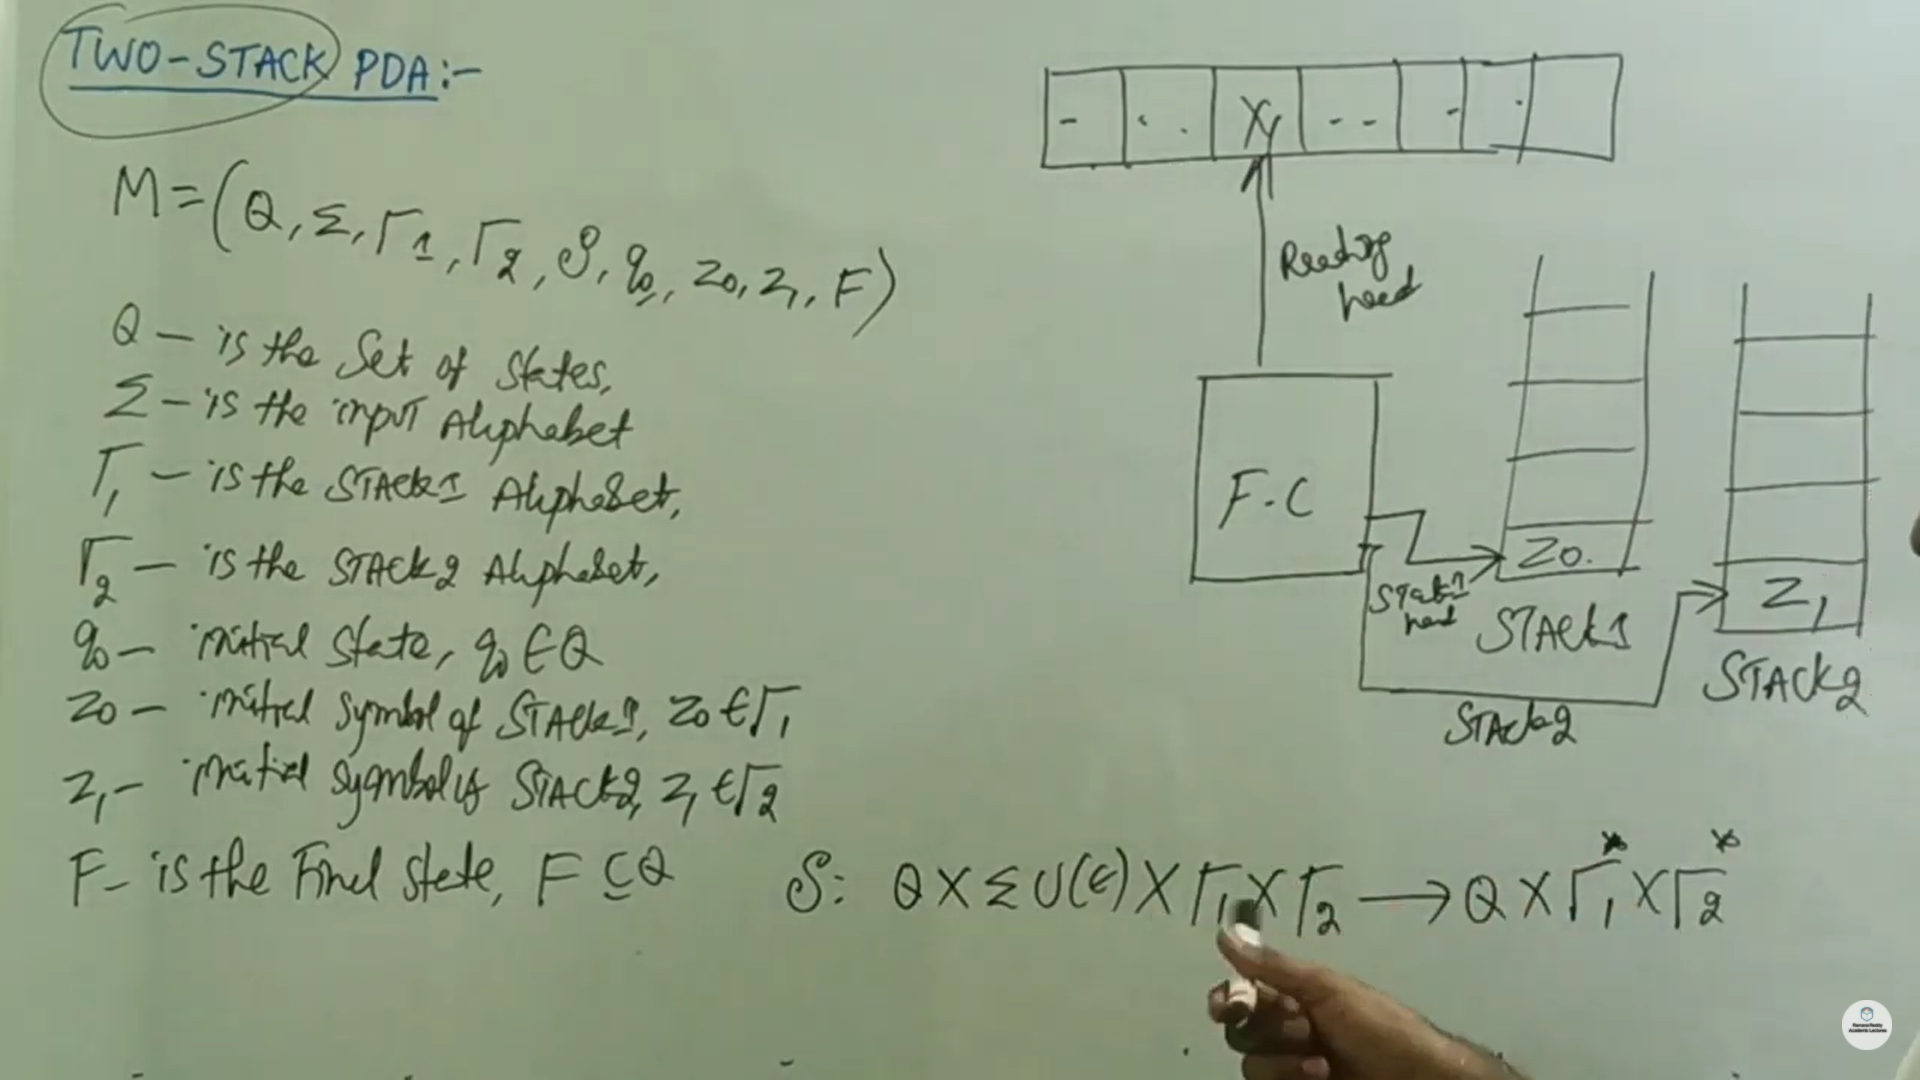 TWO-STACK PDA:-
M = (Q, Σ, Γ1, Γ2, δ, q0, Z0, Z1, F)
Q - is the Set of States,
Σ - is the input Alphabet
Γ1 - is the STACK1 Alphabet,
Γ2 - is the STACK2 Alphabet,
q0 - initial State, q0 ∈ Q
Z0 - initial Symbol of STACK1, Z0 ∈ Γ1
Z1 - initial Symbol of STACK2, Z1 ∈ Γ2
F - is the Final State, F ⊆ Q
δ: Q X Σ U (ε) X Γ1 X Γ2 → Q X Γ1* X Γ2*
- . . X - - - .
Reading
head
F.C
Z0.
STACK1
head
STACK1
Z1
STACK2
STACK2
Ramana Reddy
Academic Lectures